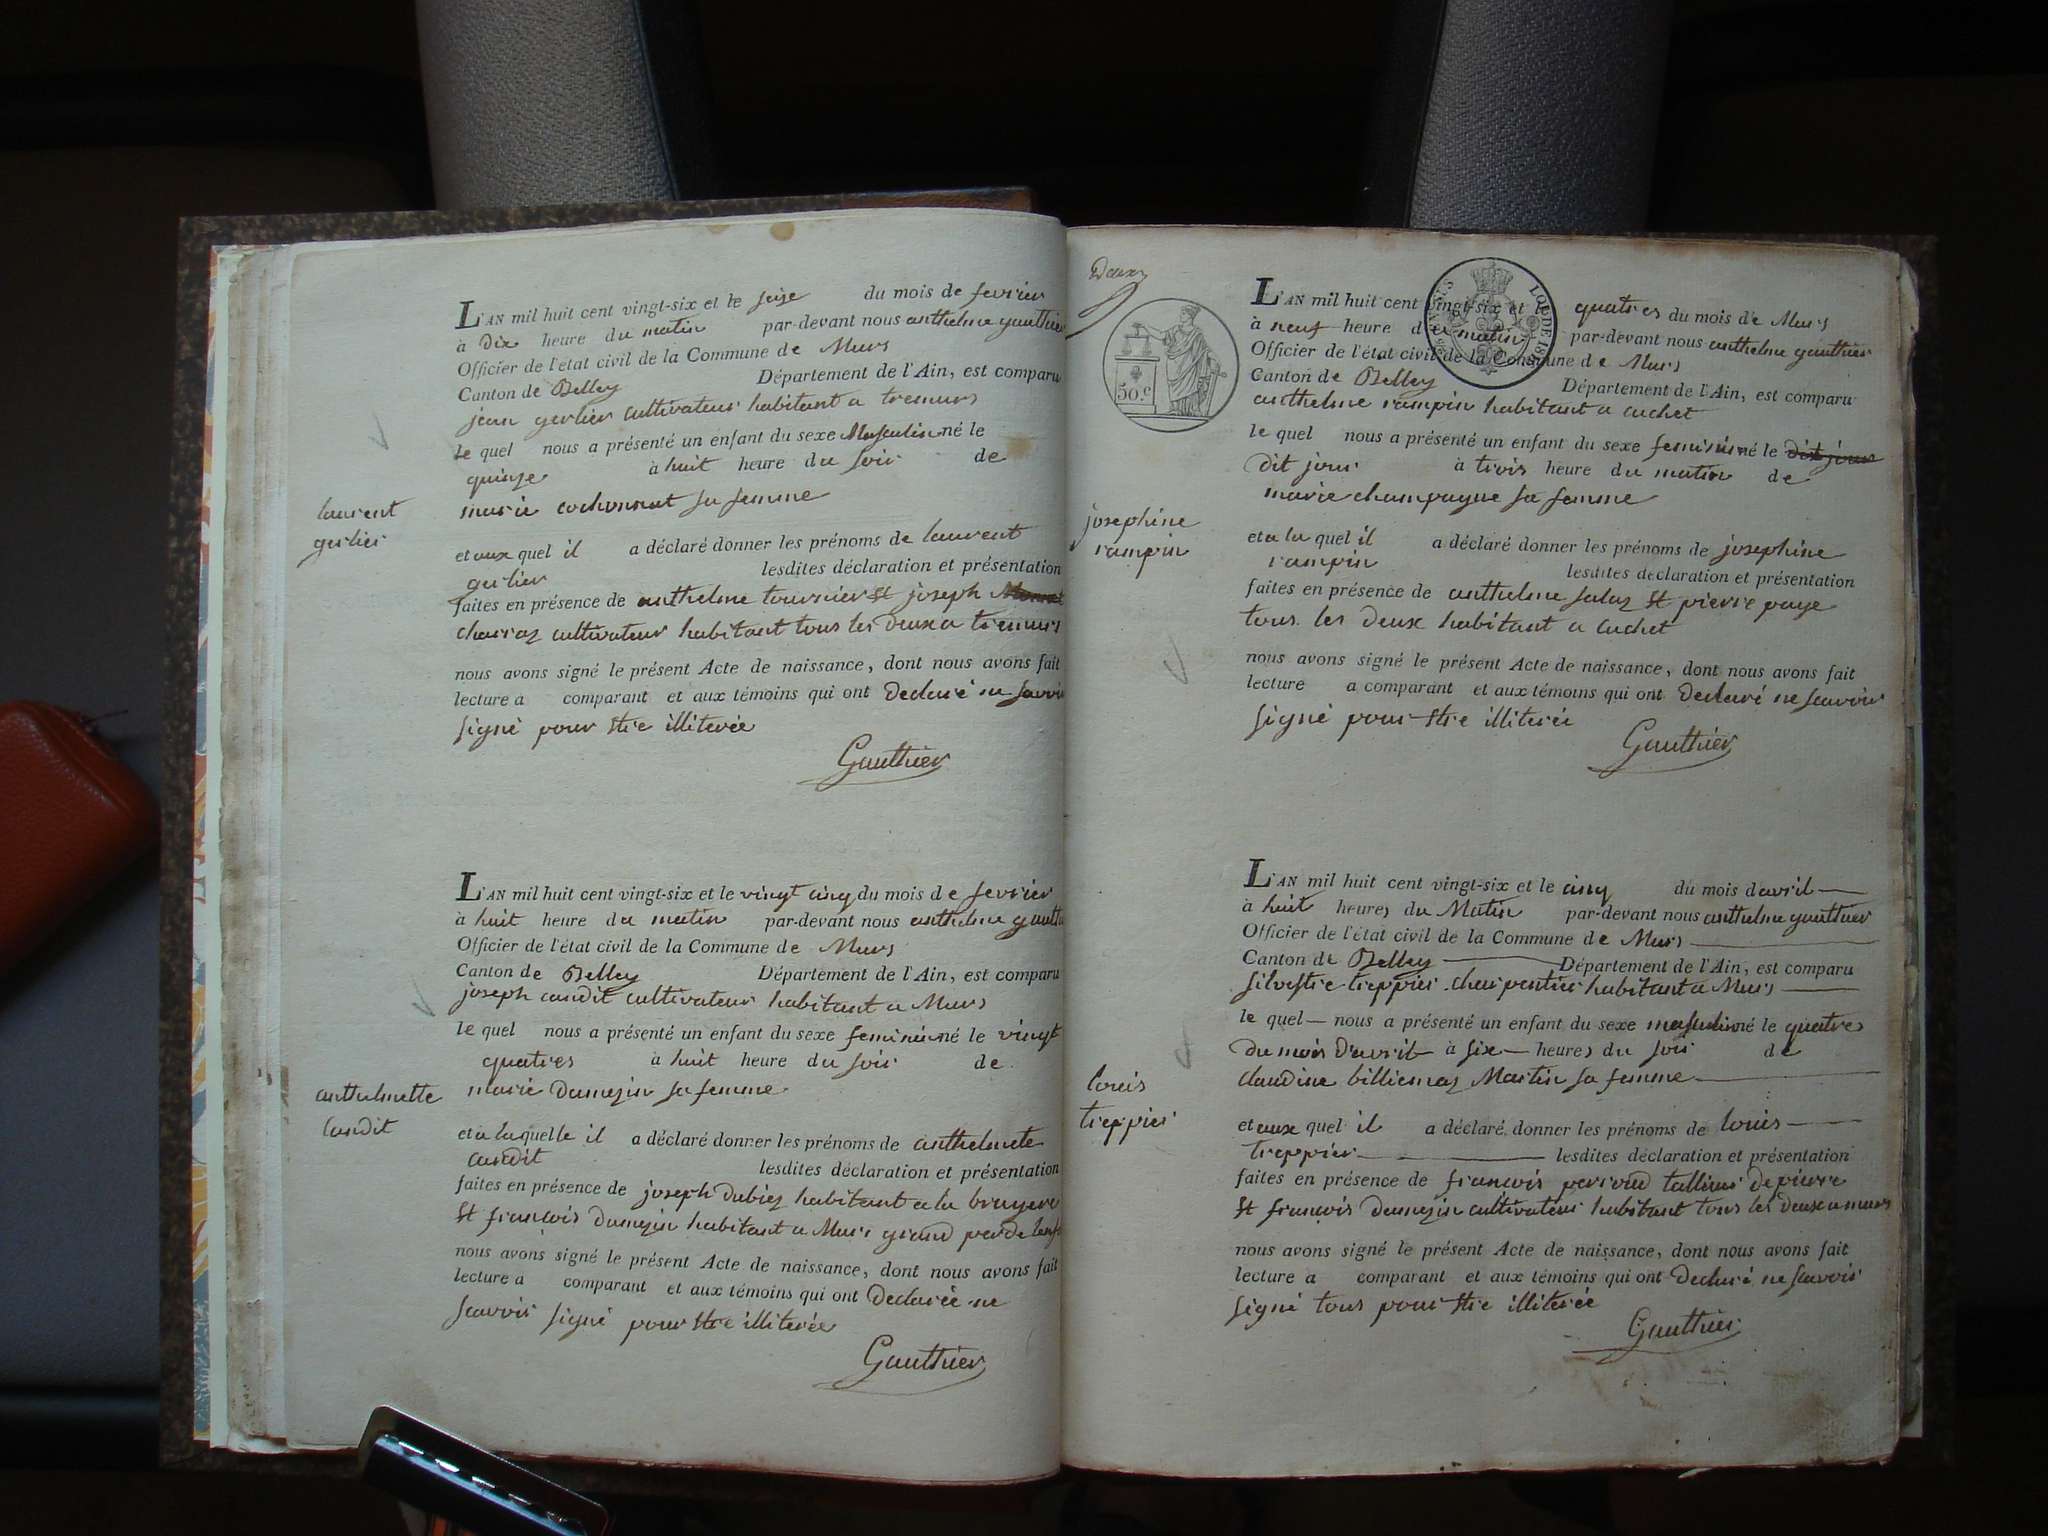 L'AN mil huit cent vingt-six et le seize du mois de fevrier
à dix heure du matin par-devant nous anthelme gauthier
Officier de l'état civil de la Commune de Murs
Canton de Belley Département de l'Ain, est comparu
jean gerlier cultivateur habitant a tremurs
le quel nous a présenté un enfant du sexe Masculin né le
quinze à huit heure du soir de
marie cochonnat sa femme
laurent
gerlier
et aux quel il a déclaré donner les prénoms de laurent
gerlier lesdites déclaration et présentation
faites en présence de anthelme tournier et joseph
charraz cultivateur habitant tous les deux a tremurs
nous avons signé le présent Acte de naissance, dont nous avons fait
lecture a comparant et aux témoins qui ont declaré ne savoir
signé pour etre illiterée
Gauthier
L'AN mil huit cent vingt-six et le vingt cinq du mois de fevrier
à huit heure du matin par-devant nous anthelme gauthier
Officier de l'état civil de la Commune de Murs
Canton de Belley Département de l'Ain, est comparu
joseph candit cultivateur habitant a Murs
le quel nous a présenté un enfant du sexe feminin né le vingt
quatres à huit heure du soir de
marie Damezin sa femme
anthelmette
candit
et a laquelle il a déclaré donner les prénoms de anthelmete
candit lesdites déclaration et présentation
faites en présence de joseph Dubiez habitant a la bruyere
et françois Damezin habitant a Murs grand per de
nous avons signé le présent Acte de naissance, dont nous avons fait
lecture a comparant et aux témoins qui ont Declarée ne
scavoir signé pour etre illiterée
Gauthier
Deux
50.c
L'AN mil huit cent vingt-six et le quatres du mois de Murs
à neuf heure du matin par-devant nous anthelme gauthier
Officier de l'état civil de la Commune de Murs
Canton de Belley Département de l'Ain, est comparu
anthelme rampin habitant a cuchet
le quel nous a présenté un enfant du sexe feminin né le dit jour
dit jour à trois heure du matin de
marie champagne sa femme
josephine
rampin
et a la quel il a déclaré donner les prénoms de josephine
rampin lesdites déclaration et présentation
faites en présence de anthelme salaz et pierre paye
tous les deux habitant a cuchet
nous avons signé le présent Acte de naissance, dont nous avons fait
lecture a comparant et aux témoins qui ont Declaré ne scavoir
signé pour etre illiterée
Gauthier
L'AN mil huit cent vingt-six et le cinq du mois davril
à huit heures du Matin par-devant nous anthelme gauthier
Officier de l'état civil de la Commune de Murs
Canton de Belley Département de l'Ain, est comparu
silvestre treppier charpentier habitant a Murs
le quel nous a présenté un enfant du sexe masculin né le quatres
du mois D'avril à six heures du soir de
claudine billiemaz Martin sa femme
louis
treppier
et aux quel il a déclaré donner les prénoms de louis
treppier lesdites déclaration et présentation
faites en présence de françois perroud tallieur de pierre
et françois Damezin cultivateur habitant tous les deux a murs
nous avons signé le présent Acte de naissance, dont nous avons fait
lecture a comparant et aux témoins qui ont Declaré ne scavoir
signé tous pour etre illiterée
Gauthier